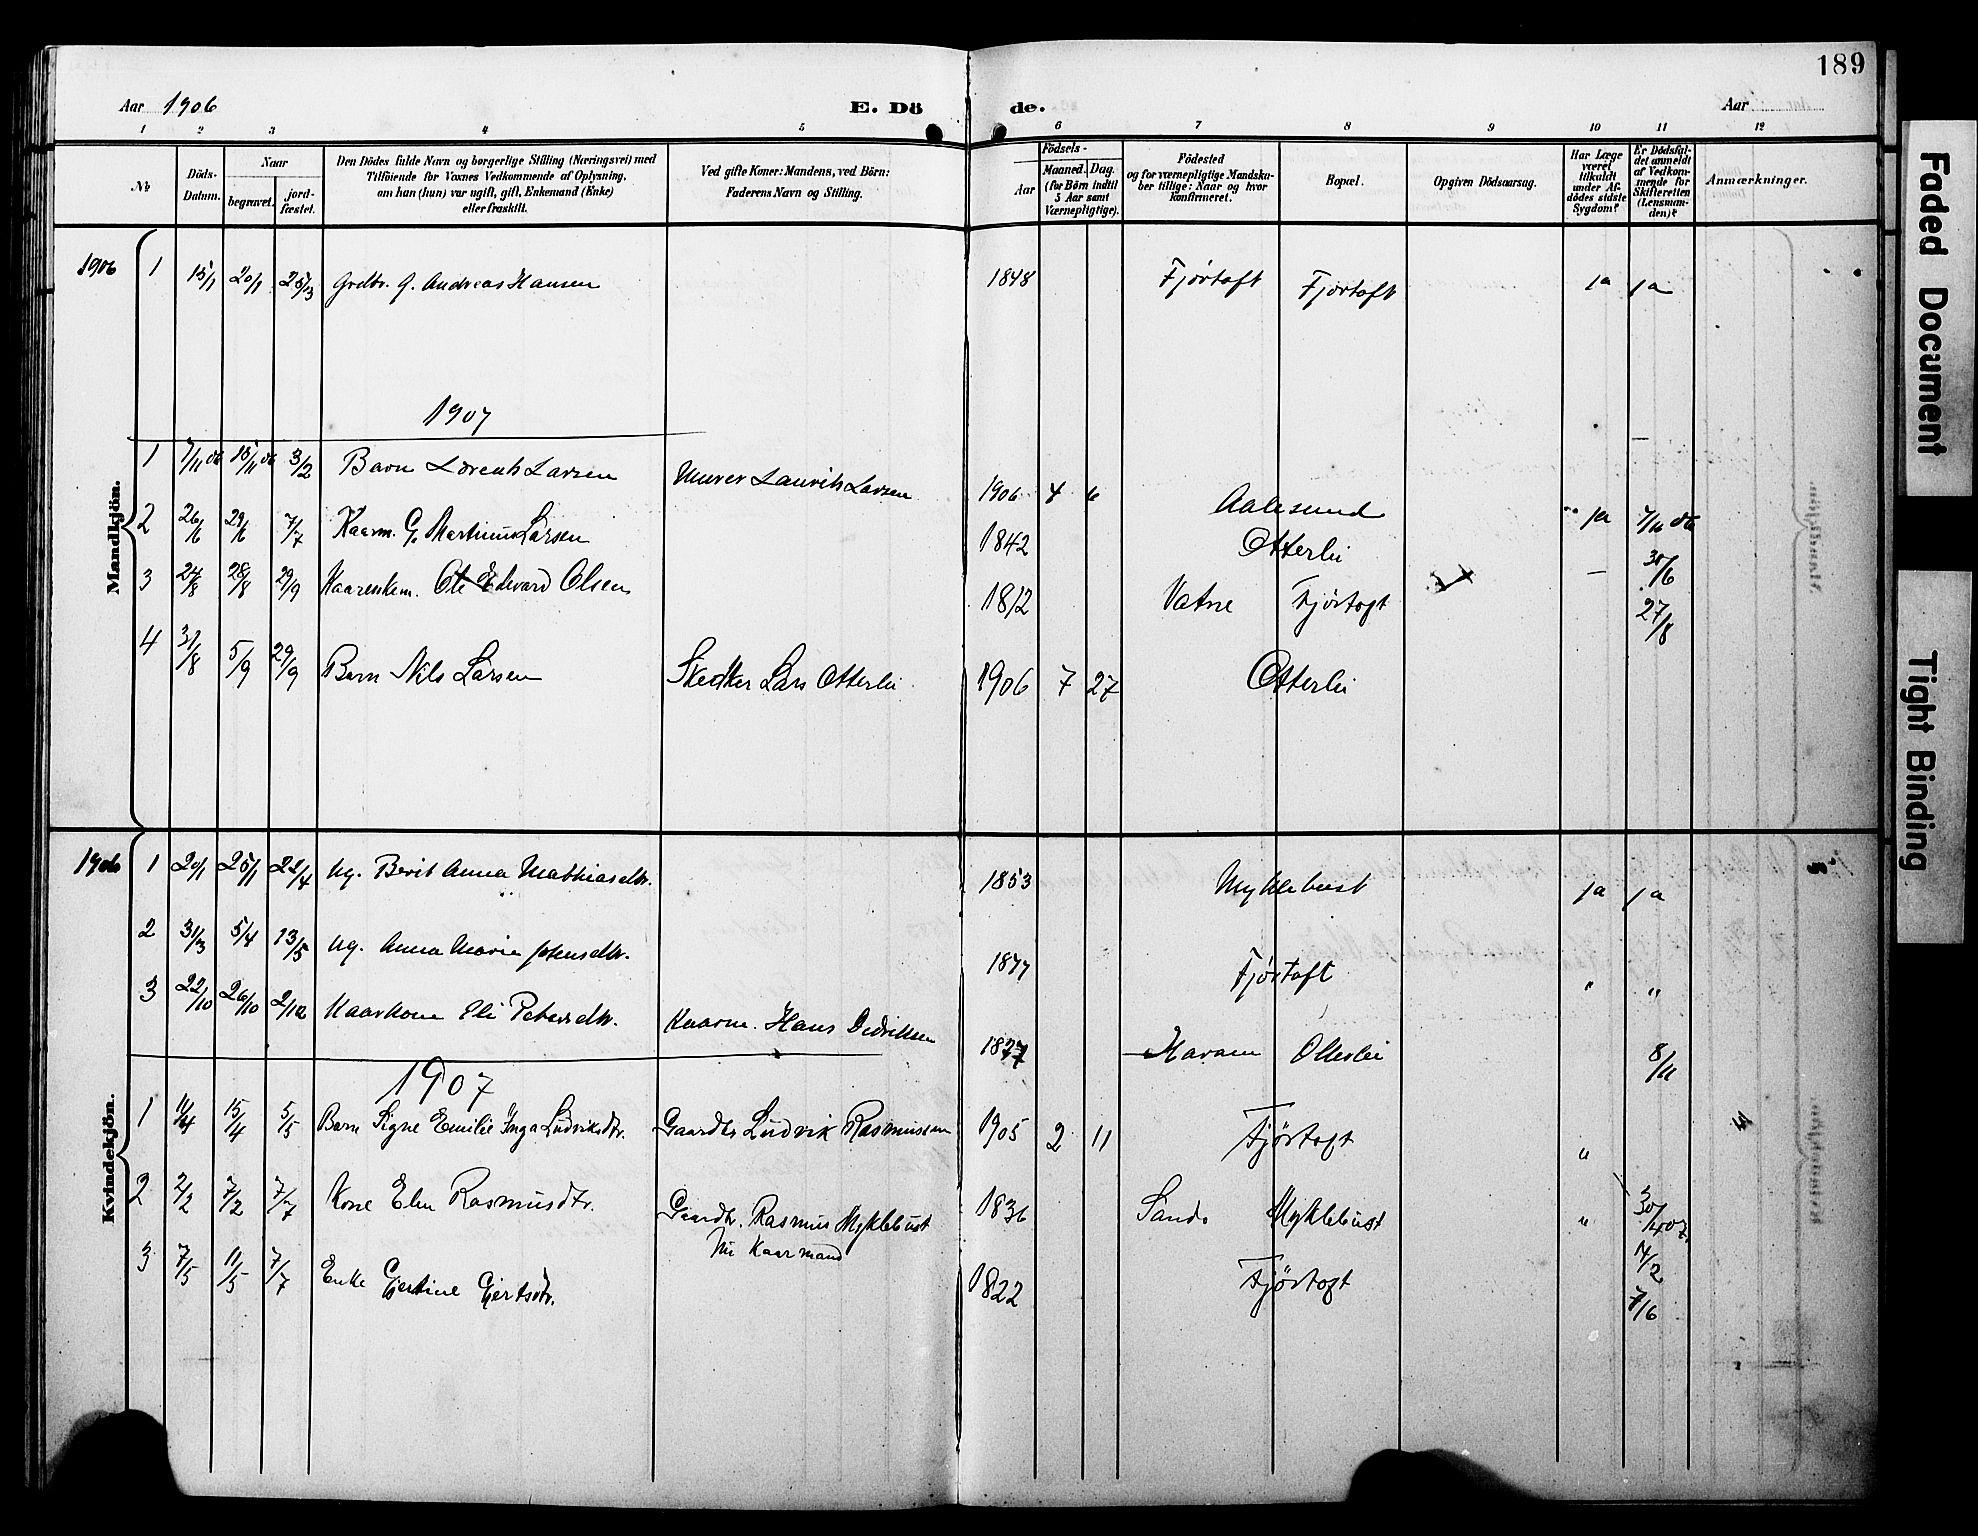 189
Aar 1906
E. Dö de.
Aar
1 2 3 4 5 6 7 8 9 10 11 12
No
Döds-Datum.
Naar
begravet.
jord-fæstet.
Den Dödes fulde Navn og borgerlige Stilling (Næringsvei) med
Tilföiende for Voxnes Vedkommende af Oplysning,
om han (hun) var ugift, gift, Enkemand (Enke)
eller fraskilt.
Ved gifte Koner: Mandens, ved Börn:
Faderens Navn og Stilling.
Födsels-
Aar
Maaned. Dag.
(for Börn indtil
5 Aar samt
Værnepligtige).
Födested
og for værnepligtige Mandska-
ber tillige: Naar og hvor
konfirmeret.
Bopæl.
Opgiven Dödsaarsag.
Har Læge
været
tilkaldt
under Af-
dödes sidste
Sygdom?
Er Dödsfal-
det anmeldt
af Vedkom-
mende for
Skifteretten
(Lensman-
den)?
Anmærkninger.
Mandkjön.
1906 1 15/1 20/1 25/3 Grdbr. G. Andreas Hansen 1848 Fjørtoft Fjørtoft ja ja
1907
1 7/11 06 15/11 06 3/2 Barn Lorents Larsen Murer Laurits Larsen 1906 4 6 Aalesund ja 7/11 06
2 26/6 29/6 7/7 Kaarm. G. Martinus Larsen 1842 Otterlei 30/6
3 24/8 28/8 29/9 Kaarenkem. Ole Edevard Olsen 1812 Vatne Fjørtoft — 27/8
4 31/8 5/9 29/9 Barn Nils Larsen Lars Otterlei 1906 7 27 Otterlei
Kvindekjön.
1906 1 20/1 25/1 22/4 Ug. Berit Anna Mathiasdtr. 1853 Myklebust ja ja
2 31/3 5/4 13/5 Ug. Anna Marie Jetmsdtr. 1877 Fjørtoft " "
3 22/10 26/10 2/12 Kaarkone Eli Petersdtr. Kaarm. Hans Didriksen 1827 Haram Otterlei 8/11
1907
1 11/4 15/4 5/5 Barn Signe Emilie Inga Ludviksdtr. Gaardbr. Ludvik Rasmussen 1905 2 11 Fjørtoft "
2 2/2 7/2 7/7 Kone Elen Rasmusdtr. Gaardbr. Rasmus Myklebust 1836 Sands Myklebust " 30/4 07.
nu Kaarmand 4/2
3 7/5 11/5 7/7 Enke Gjertine Gjertsdtr. 1822 Fjørtoft 7/6
Faded Document
Tight Binding